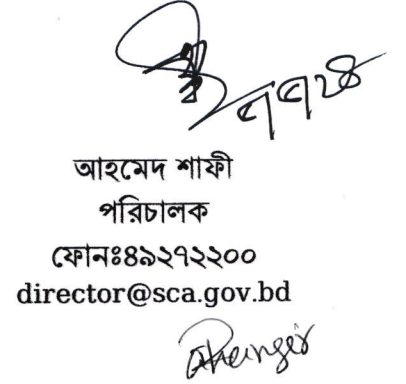 আহমেদ শাফী
পরিচালক
ফোনঃ৪৯২৭২২০০
director@sca.gov.bd